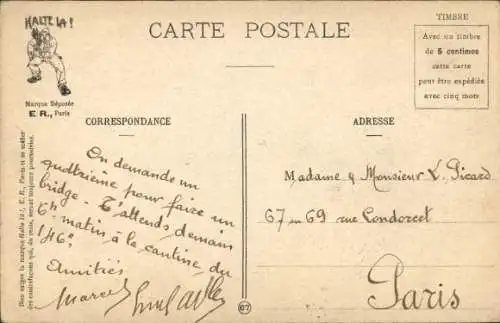 HALTE LA !
Marque Déposée
E. R., Paris
CARTE POSTALE
TIMBRE
Avec un timbre
de 5 centimes
cette carte
peut être expédiée
avec cinq mots
CORRESPONDANCE
ADRESSE
On demande un
quatrième pour faire un
bridge - T'attends demain
6h matin à la cantine du
46e.
Amitiés
Marcel
Madame & Monsieur L. Picard
67 ou 69 rue Condorcet
Paris
67
Bien exiger la marque Halte là !, E. R., Paris et se méfier
des contrefaçons qui, du reste, seront toujours poursuivies.